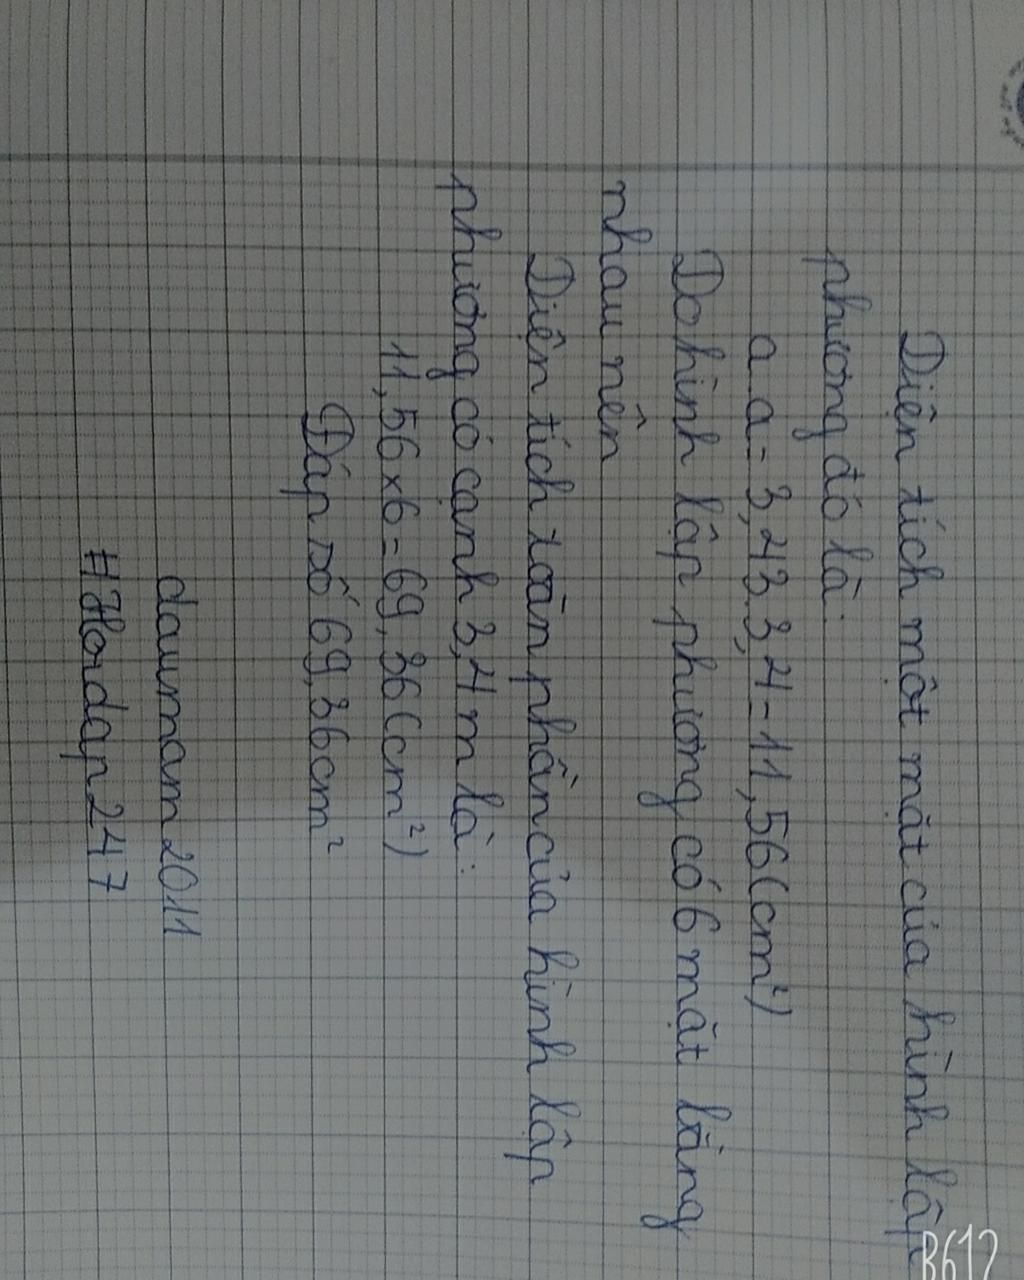 Diện tích một mặt của hình lập
phương đó là:
a.a=3,43.3,4=11,56(cm²)
Do hình lập phương có 6 mặt bằng
nhau nên
Diện tích toàn phần của hình lập
phương có cạnh 3,4 m là:
11,56x6=69,36(cm²)
Đáp số 69,36cm²
daumam2011
#Hordap247
B612